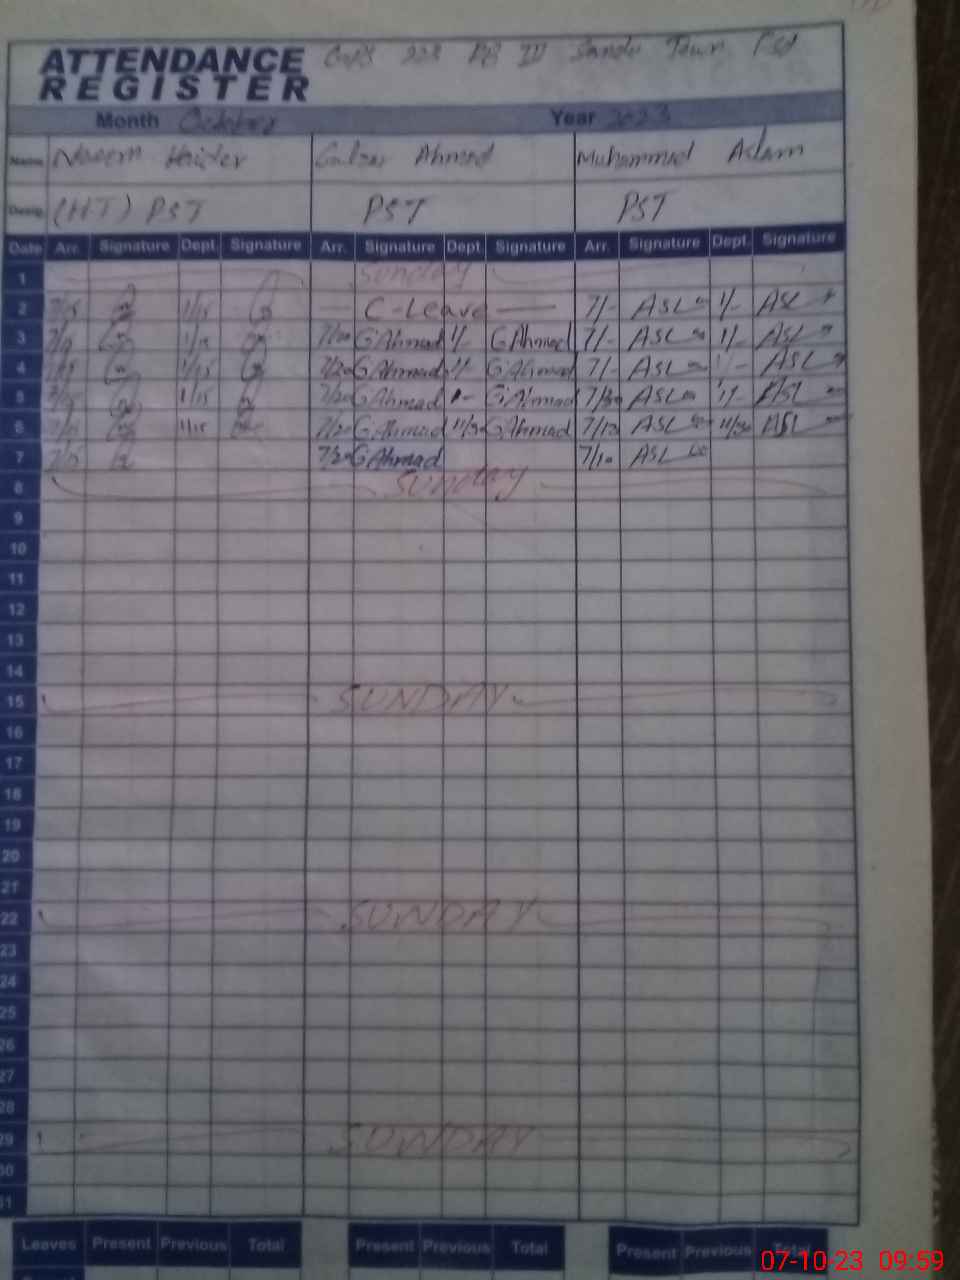 ATTENDANCE
REGISTER
Town
Month October Year 2023
Name Naeem Haider Gulzar Ahmad Muhammad Aslam
Desig. (HT) PST PST PST
Date Arr. Signature Dept. Signature Arr. Signature Dept. Signature Arr. Signature Dept. Signature
1 Sunday
2 7/15 1/15 C-Leave 7/- ASL 1/- ASL
3 1/15 GAhmad 1/- GAhmad 7/- ASL 1/- ASL
4 1/15 7/20 GAhmad 1/- GAhmad 7/- ASL 1/- ASL
5 1/15 7/20 GAhmad GAhmad ASL 1/- ASL
6 11/15 7/20 GAhmad GAhmad 7/10 ASL 11/30 ASL
7 7/15 7/20 GAhmad 7/10 ASL
8 Sunday
9
10
11
12
13
14
15 SUNDAY
16
17
18
19
20
21
22 SUNDAY
23
24
25
26
27
28
29 SUNDAY
30
31
Leaves Present Previous Total Present Previous Total Present Previous Total
07-10-23 09:59